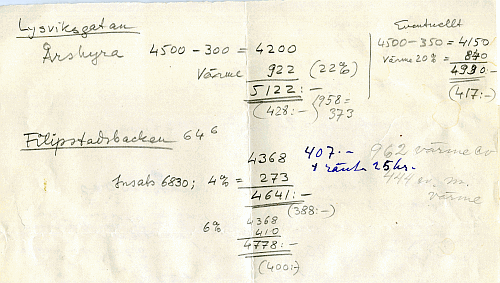 Lysviksgatan
Årshyra 4500-300 = 4200
Värme 922 (22%)
5122:-
(428:-) (958=
373
Eventuellt
4500-350 = 4150
Värme 20% = 840
4990:-
(417:-)
Filipstadsbacken 64⁶
4368
Insats 6830; 4% = 273
4641:-
(388:-)
6% 4368
410
4778:-
(400:-)
407:- 962 värme
+ ränta 25kr.
444 värme